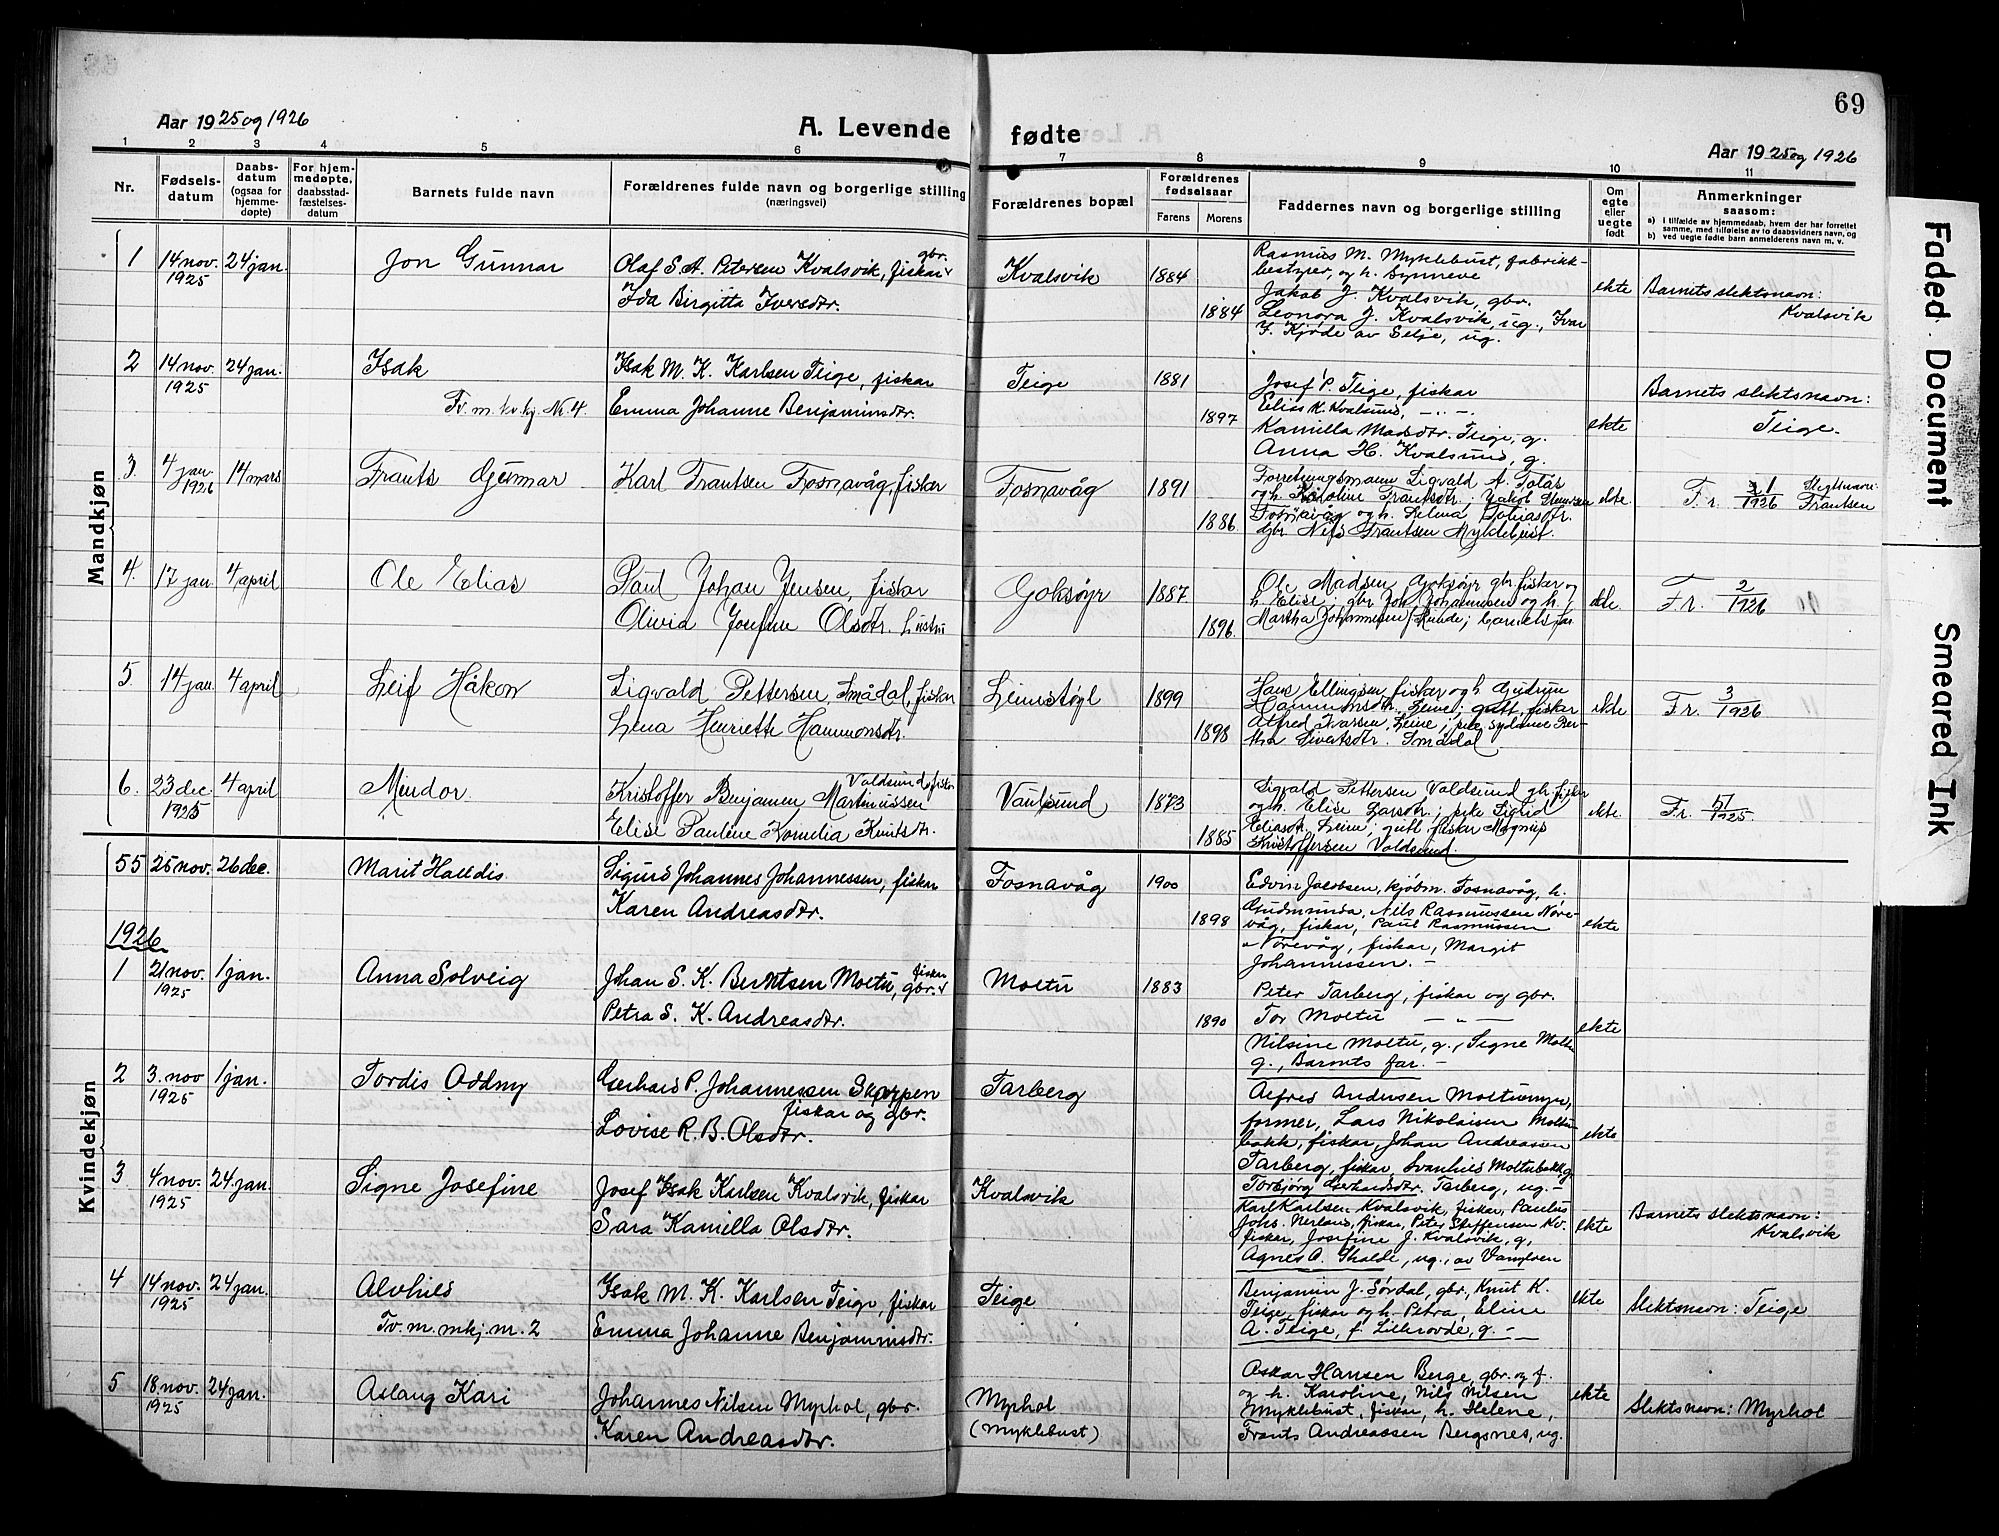 69
Aar 1925 og 1926
A. Levende fødte
Aar 1925 og 1926
1 2 3 4 5 6 7 8 9 10 11
Nr.
Fødsels-
datum
Daabs-
datum
(ogsaa for
hjemme-
døpte)
For hjem-
medøpte,
daabsstad-
fæstelses-
datum
Barnets fulde navn
Forældrenes fulde navn og borgerlige stilling
(næringsvei)
Forældrenes bopæl
Forældrenes
fødselsaar
Farens Morens
Faddernes navn og borgerlige stilling
Om
egte
eller
uegte
født
Anmerkninger
saasom:
a) i tilfælde av hjemmedaab, hvem der har forrettet
samme, med tilføielse av to daabsvidners navn, og
b) ved uegte fødte barn anmelderens navn m. v.
Mandkjøn
1 14 nov. 1925 24 jan. Jon Gunnar
Olaf S. A. Petersen Kvalsvik, fiskar & gbr.
Ida Birgitta Iversdtr.
Kvalsvik 1884 1884
Rasmus M. Myklebust, fabrikk-
bestyrer, og h. Synneve
Jakob J. Kvalsvik, gbr.
Leonora J. Kvalsvik, ug., Ivar
I. Kjøde av Selje, ug.
ekte
Barnets slektsnavn:
Kvalsvik
2 14 nov. 1925 24 jan. Isak
Tv. m. kv.kj. Nr. 4
Isak M. K. Karlsen Teige, fiskar
Emma Johanne Benjaminsdtr.
Teige 1881 1897
Josef P. Teige, fiskar
Elias K. Kvalsund, - " -
Kamilla Madsdtr. Teige, g.
Anna H. Kvalsund, g.
ekte
Barnets slektsnavn:
Teige.
3. 4 jan. 1926 14 mars Frants Gunnar
Karl Frantsen Fosnavåg, fiskar
Fosnavåg 1891 1886
Forretningsmann Sigvald A. Folås
og h. Karoline Frantsdtr.; Jakob
Fosnavåg og h. Selma Tobiasdtr.
Gbr Nils Frantsen Myklebust.
ekte.
F. r. 1/1926 Slegtnavn:
Frantsen
4. 17 jan. 4 april Ole Elias
Paul Johan Jensen, fiskar
Olivia Josefine Olsdtr. hustru
Goksøyr 1887 1896.
Ole Madsen Goksøyr gbr. fiskar og
h. Elise; gbr Johannessen og h.
Martha Johannesen; barnets far
ekte.
F. r. 2/1926
5. 14 jan. 4 april Leif Håkon
Sigvald Pettersen, Smådal, fiskar
Lena Henriette Hammonsdtr.
Leinstøyl 1899 1898
Hans Ellingsen, fiskar og h. Gudrun
Hammonsdtr. Leine; gutt, fiskar
Alfred Ivarsen, Leine; pike, sydame Ber-
tha Sivertsdtr. Smådal
ekte
F. r. 3/1926
6. 23 dec. 1925 4 april Mindor.
Kristoffer Benjamin Martinussen Voldsund, fiskar
Elise Pauline Kornelia Knutsdtr.
Vaulsund 1873 1885
Sigvald Pettersen Voldsund gbr. fiskar
og h. Elise Larsdtr.; pike Sigrid
Eliasdtr. Leine; gutt fiskar Magnus
Kristoffersen Voldsund.
ekte.
F. r. 51/1925
Kvindekjøn
55 25 nov. 26 dec. Marit Halldis.
Sigurd Johannes Johannessen, fiskar
Karen Andreasdtr.
Fosnavåg 1900 1898
Edvin Jacobsen, kjøbm. Fosnavåg, h.
Gudmunda, Nils Rasmussen Nore-
våg, fiskar, Paul Rasmussen
Norevåg, fiskar, Margit
Johannessen. -
ekte
1926
1 21 nov. 1925 1 jan. Anna Solveig
Johan S. K. Berntsen Moltu, fiskar & gbr.
Petra S. K. Andreasdtr.
Moltu 1883 1890
Peter Tarberg, fiskar og gbr.
Tor Moltu - " -
Nilsine Moltu, g., Signe Moltu
g., Barnets far. -
ekte
2 3. nov 1925 1 jan. Tordis Oddny
Gerhard P. Johannessen Skorpen
fiskar og gbr.
Lovise R. B. Olsdtr.
Tarberg
Alfred Andersen Moltumyr,
former, Lars Nikolaisen Moltu-
bakk, fiskar, Johan Andreassen
Tarberg, fiskar, Svanhild Moltubakk g
Torbjørg Gerhardsdtr. Tarberg, ug. -
ekte
3 4 nov. 1925 24. jan. Signe Josefine
Josef Isak Karlsen Kvalsvik, fiskar
Sara Kamilla Olsdtr.
Kvalsvik
Karl Karlsen Kvalsvik, fiskar, Paulus
Johs. Nerland, fiskar, Peter Steffensen Kv.
fiskar, Josefine J. Kvalsvik, g,
Agnes O. Skalde, ug., av Vanylven
ekte
Barnets slektsnavn:
Kvalsvik
4 14 nov. 1925 24 jan. Alvhild
Tv. m. mkj. nr. 2
Isak M. K. Karlsen Teige, fiskar
Emma Johanne Benjaminsdtr.
Teige
Benjamin J. Sørdal, gbr., Knut K.
Teige, fiskar og h. Petra, Eline
A. Teige, f. Lillerovde, g. -
ekte
Slektsnavn: Teige
5 18. nov. 1925 24 jan. Aslaug Kari
Johannes Nilsen Myrhol, gbr.
Karen Andreasdtr.
Myrhol
(Myklebust)
Oskar Hansen Berge, gbr. og f.
og h. Karoline, Nils Nilsen
Myklebust, fiskar, h. Helene,
Frants Andreassen Bergsnes, ug.
ekte
Slektsnavn: Myrhol
Faded Document
Smeared Ink